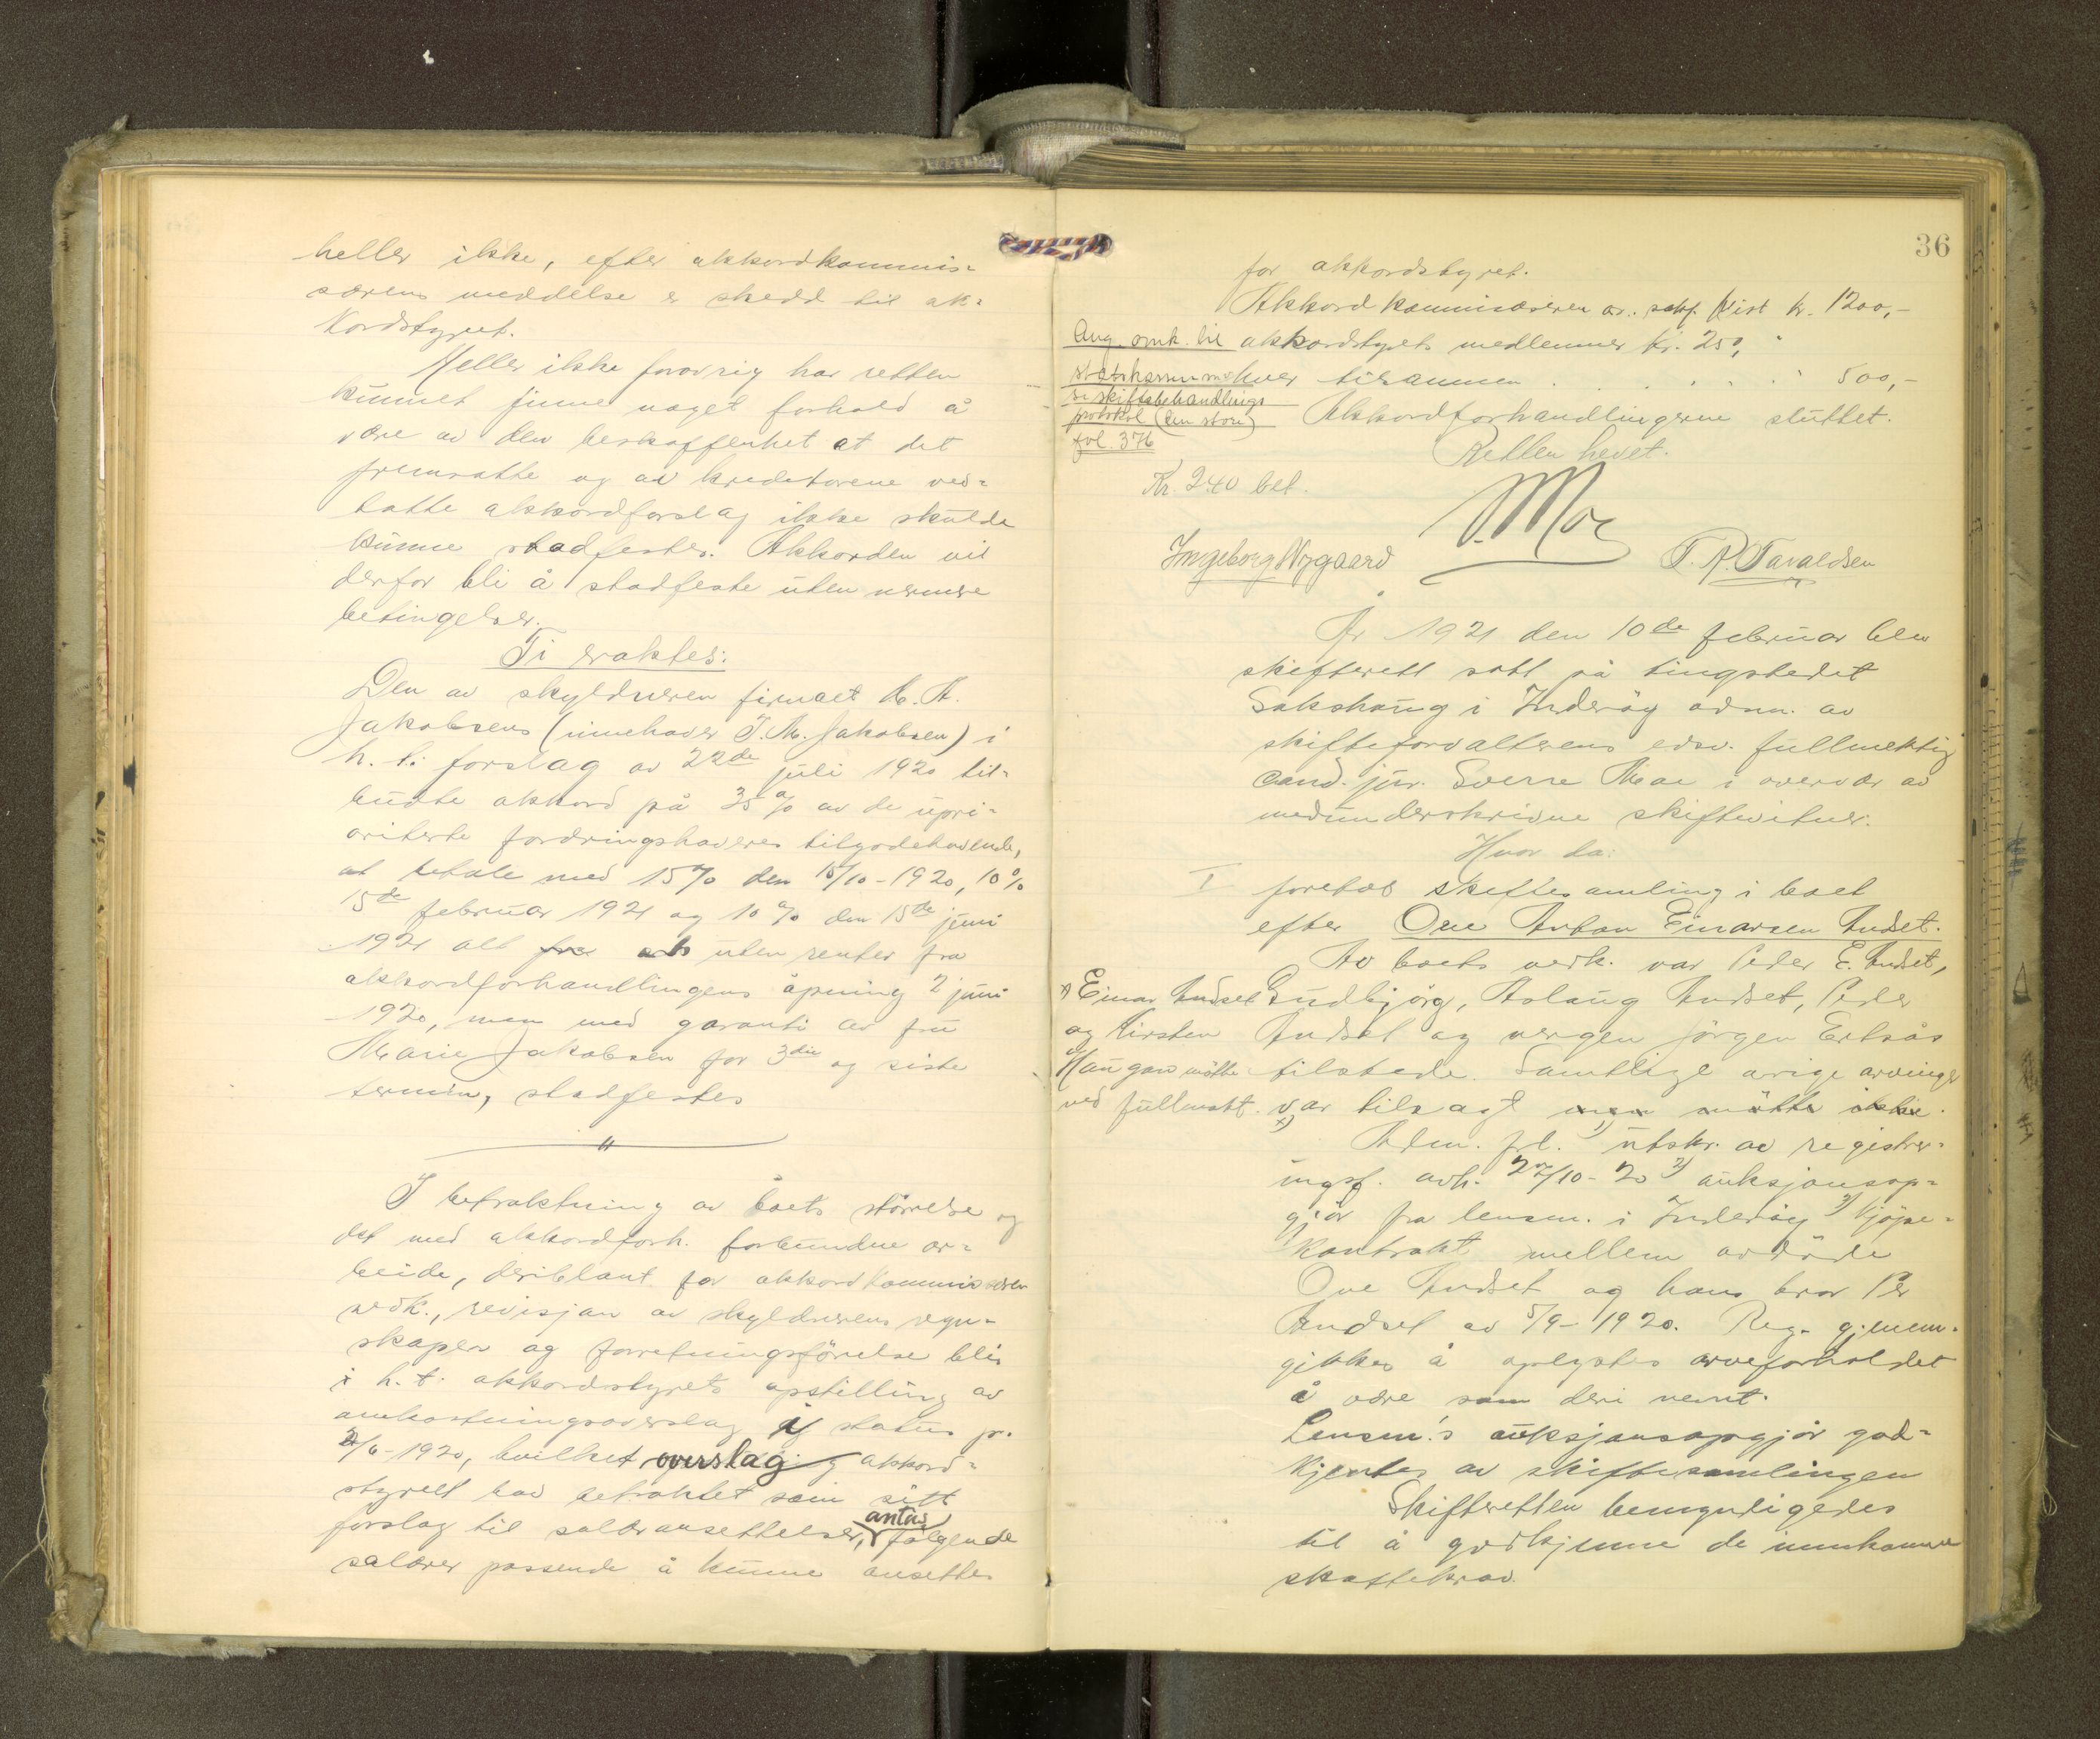 heller ikke, efter akkordkommis-
særens meddelse er skedd til ak-
kordstyret.
Heller ikke forøvrig har retten
kunnet finne noget forhold å
være av den beskaffenhet at det
fremsatte og av kreditorene ved-
tatte akkordforslag ikke skulde
kunne stadfestes. Akkorden vil
derfor bli å stadfeste uten nermere
betingelser.
Ti eraktes:
Den av skyldneren firmaet M. A.
Jakobsens (innehaver T. M. Jakobsen) i
h. t. forslag av 22de juli 1920 til-
budte akkord på 35 % av de upri-
oriterte fordringshaveres tilgodehavende,
at betale med 15% den 15/10-1920, 10%
15de februar 1921 og 10% den 15de juni
1921 alt uten renter fra
akkordforhandlingens åpning 2 juni
1920, men med garanti av fru
Marie Jakobsen for 3die og siste
termin, stadfestes
I betraktning av boets störrelse og
det med akkordforh. forbundne ar-
beide, deriblant for akkordkommisæren
vedk., revisjon av skyldnerens regn-
skaper og forretningsförelse blir
i h. t. akkordstyrets opstilling av
omkostningsoverslag i status pr.
2/6-1920, hvilket overslag akkord-
styret har betraktet som sitt
forslag til salæransettelser, antas fölgende
salærer passende å kunne ansettes
36
for akkordstyret.
Akkordkommisæren o.r. sakf. Kist kr. 1200,-
Ang. omk. til akkordstyrets medlemmer kr. 250,
statskassen m.v. hver tilsammen . . . . . 500,-
se skiftebehandlings
protokol (den store) Akkordforhandlingerne sluttet.
fol. 376
Retten hevet.
Kr. 240 bet.
S. Moe
Ingeborg Nygaard T. R. Tavaldsen
År 1921 den 10de februar blev
skifterett satt på tingstedet
Sakshaug i Inderöy adm. av
skifteforvalterens edsv. fullmektig
cand. jur. Sverre Moe i overvær av
medunderskrivne skiftevitner.
Hvor da:
I foretas skiftesamling i boet
efter Ove Anton Einarsen Andset.
Av boets vedk. var Peder E. Andset,
x) Einar Andset Gudbjörg, Aslaug Andset, Peder
og Kirsten Andset og vergen Jörgen Ertsås
Haugan mötte tilstede. Samtlige övrige arvinger
ved fullmakt. var tilsagt men mötte ikke.
x)
Adm. frl. 1) utskr. av registrer-
ingsf. avh. 27/10-20 2) auksjonsop-
gjör fra lensm. i Inderöy 3) kjöpe-
kontrakt mellem avdöde
Ove Andset og hans bror Per
Andset av 5/9-1920. Reg. gjenem-
gikkes å oplystes arveforholdet
å være som deri nevnt.
Lensm.'s auksjonsopgjör god-
kjentes av skiftesamlingen
Skifteretten bemyndigedes
til å godkjenne de innkomne
skattekrav.